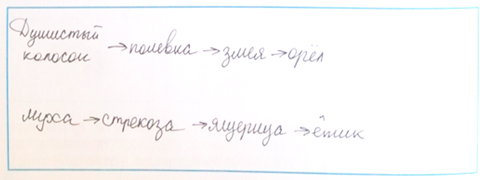 Душистый
колосок →полевка →змея →орёл
муха →стрекоза →ящерица →ёжик